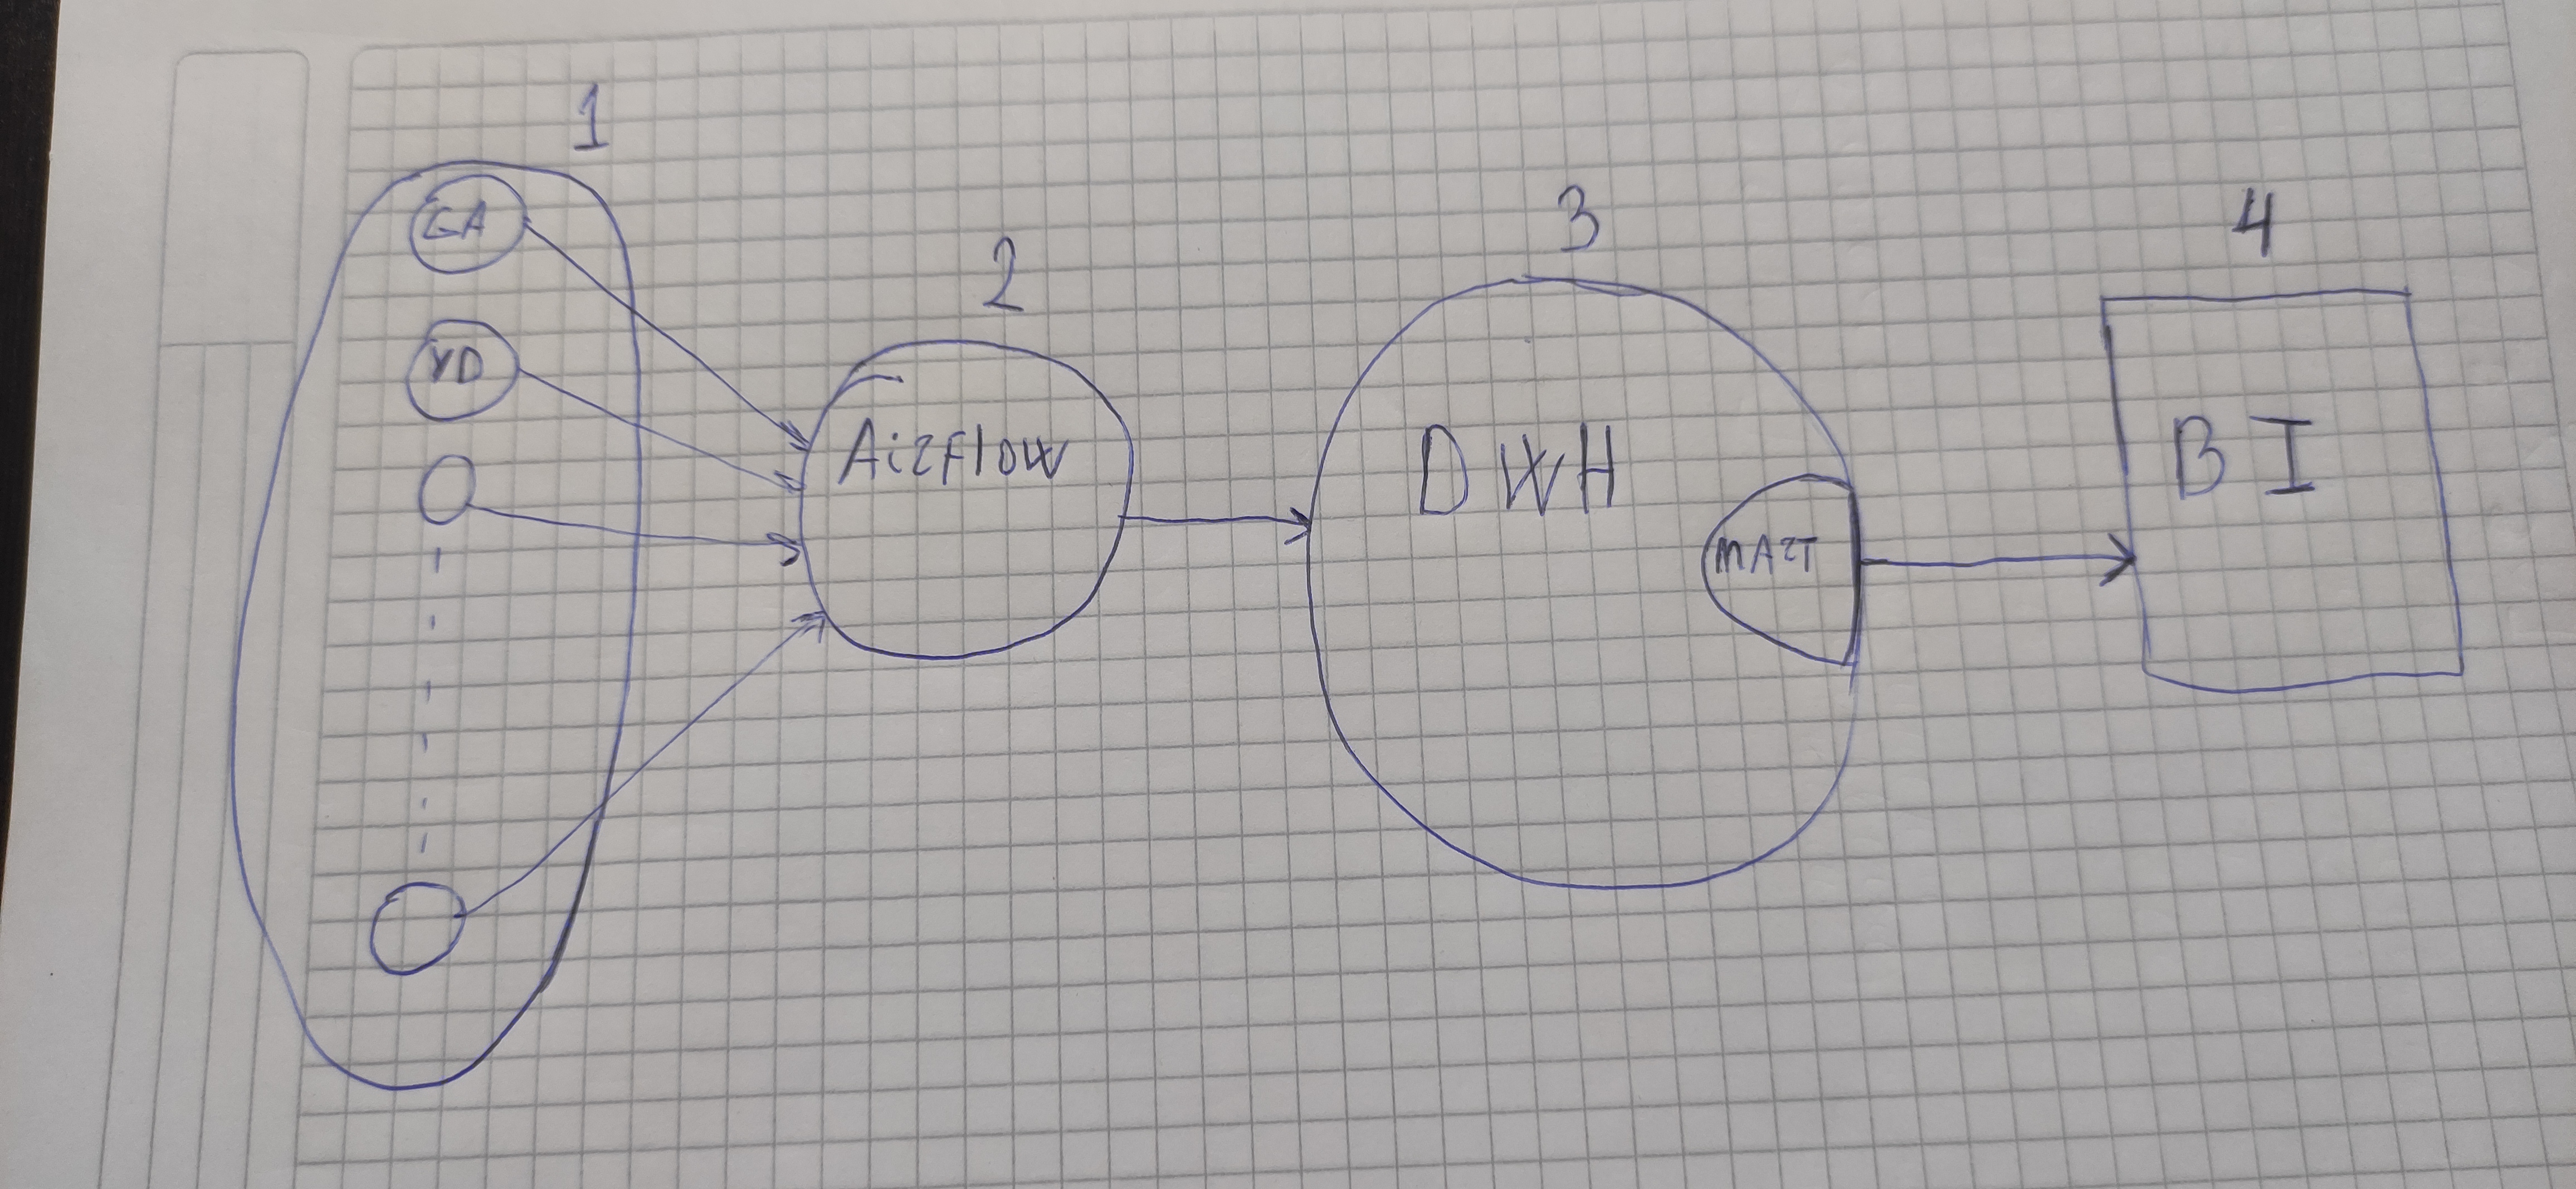 1
GA
YD
2
Airflow
3
DWH
MART
4
BI